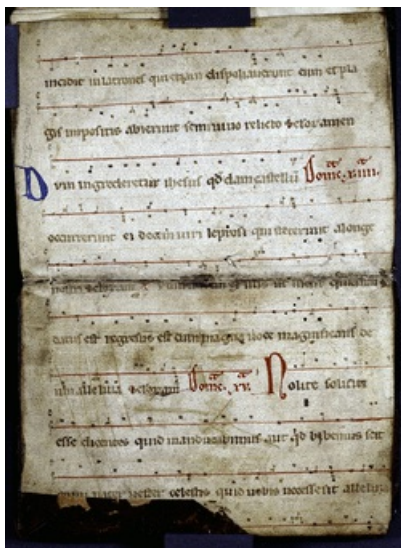 incidit in latrones qui etiam dispoliaverunt eum et pla
gis impositis abierunt semivivo relicto & evovamen
Dum ingrederetur ihesus qđdam castellū Domīc. xiiii.
occurrerunt ei decem viri leprosi qui steterunt a longe
datus est regressus est cum magna voce magnificans de
um alleluia Domīc. xv. Nolite soliciti
esse dicentes quid manducabimus aut qid bibemus scit
enim pater vester celestis quid vobis necesse sit alleluia